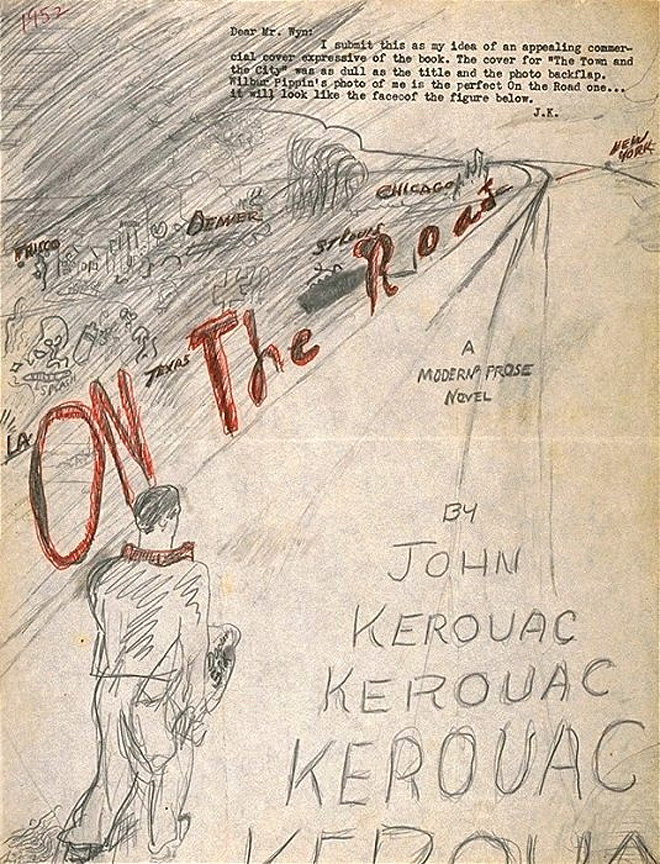 1952
Dear Mr. Wyn:
I submit this as my idea of an appealing commer-
cial cover expressive of the book. The cover for "The Town and
the City" was as dull as the title and the photo backflap.
Wilbur Pippin's photo of me is the perfect On the Road one...
it will look like the faceof the figure below.
J.K.
NEW
YORK
CHICAGO
DENVER
ST LOUIS
FRISCO
TEXAS
SPLASH
LA
ON The Road
A
MODERN PROSE
NOVEL
BY
JOHN
KEROUAC
KEROUAC
KEROUAC
KEROUA